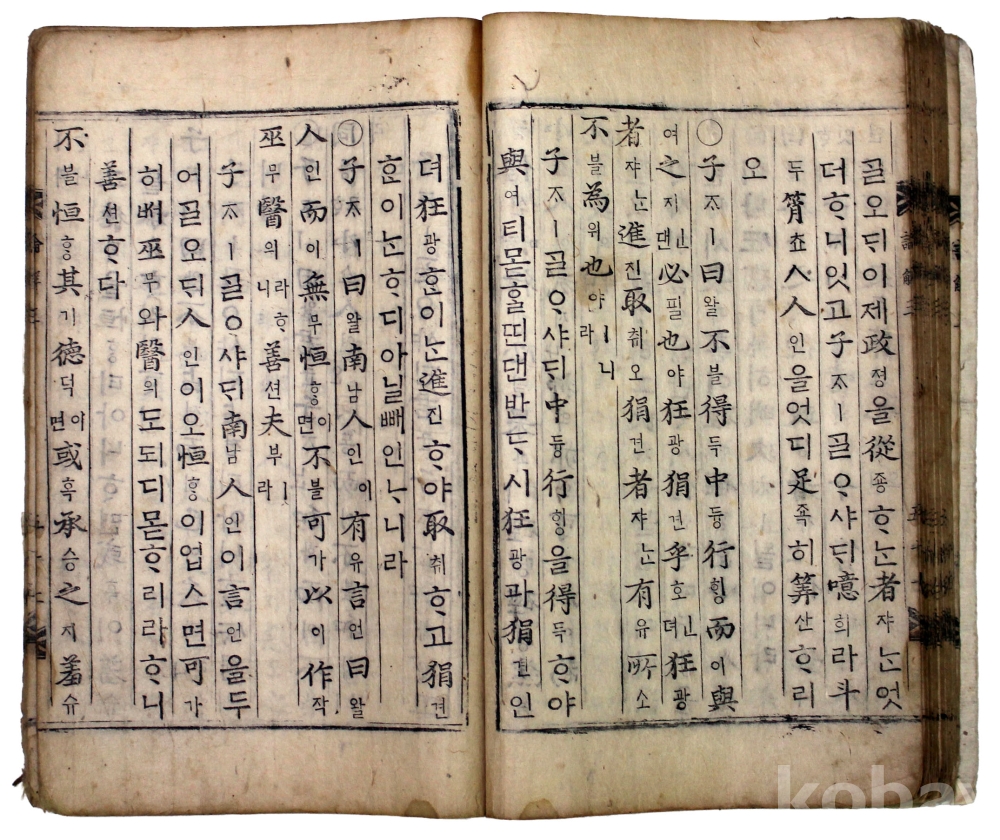 ᄀᆞᆯ오ᄃᆡ이제政졍을從죵ᄒᆞᄂᆞᆫ者쟈ᄂᆞᆫ엇
더ᄒᆞ니잇고子ᄌᆞㅣᄀᆞᆯᄋᆞ샤ᄃᆡ噫희라斗
두筲쵸ㅅ人인을엇디足죡히筭산ᄒᆞ리
오
○子ᄌᆞㅣ曰왈不블得득中듕行ᄒᆡᆼ而이與
여之지ㄴ댄必필也야狂광狷견乎호ㄴ뎌狂광
者쟈ᄂᆞᆫ進진取ᄎᆔ오狷견者쟈ᄂᆞᆫ有유所소
不블為위也야ㅣ니라
子ᄌᆞㅣᄀᆞᆯᄋᆞ샤ᄃᆡ中듕行ᄒᆡᆼ을得득ᄒᆞ야
與여티몯ᄒᆞᆯ띤댄반ᄃᆞ시狂광과狷견인
뎌狂광ᄒᆞᆫ이ᄂᆞᆫ進진ᄒᆞ야取ᄎᆔᄒᆞ고狷견
ᄒᆞᆫ이ᄂᆞᆫᄒᆞ디아닐빼인ᄂᆞ니라
○子ᄌᆞㅣ曰왈南남人인이有유言언曰왈
人인而이無무恒ᄒᆞᆼ이면不블可가以이作작
巫무醫의라ᄒᆞ니善션夫부ㅣ라
子ᄌᆞㅣᄀᆞᆯᄋᆞ샤ᄃᆡ南남人인이言언을두
어ᄀᆞᆯ오ᄃᆡ人인이오恒ᄒᆞᆼ이업스면可가
히ᄡᅥ巫무와醫의도되디몯ᄒᆞ리라ᄒᆞ니
善션ᄒᆞ다
不블恒ᄒᆞᆼ其기德덕이면或혹承승之지羞슈
koba